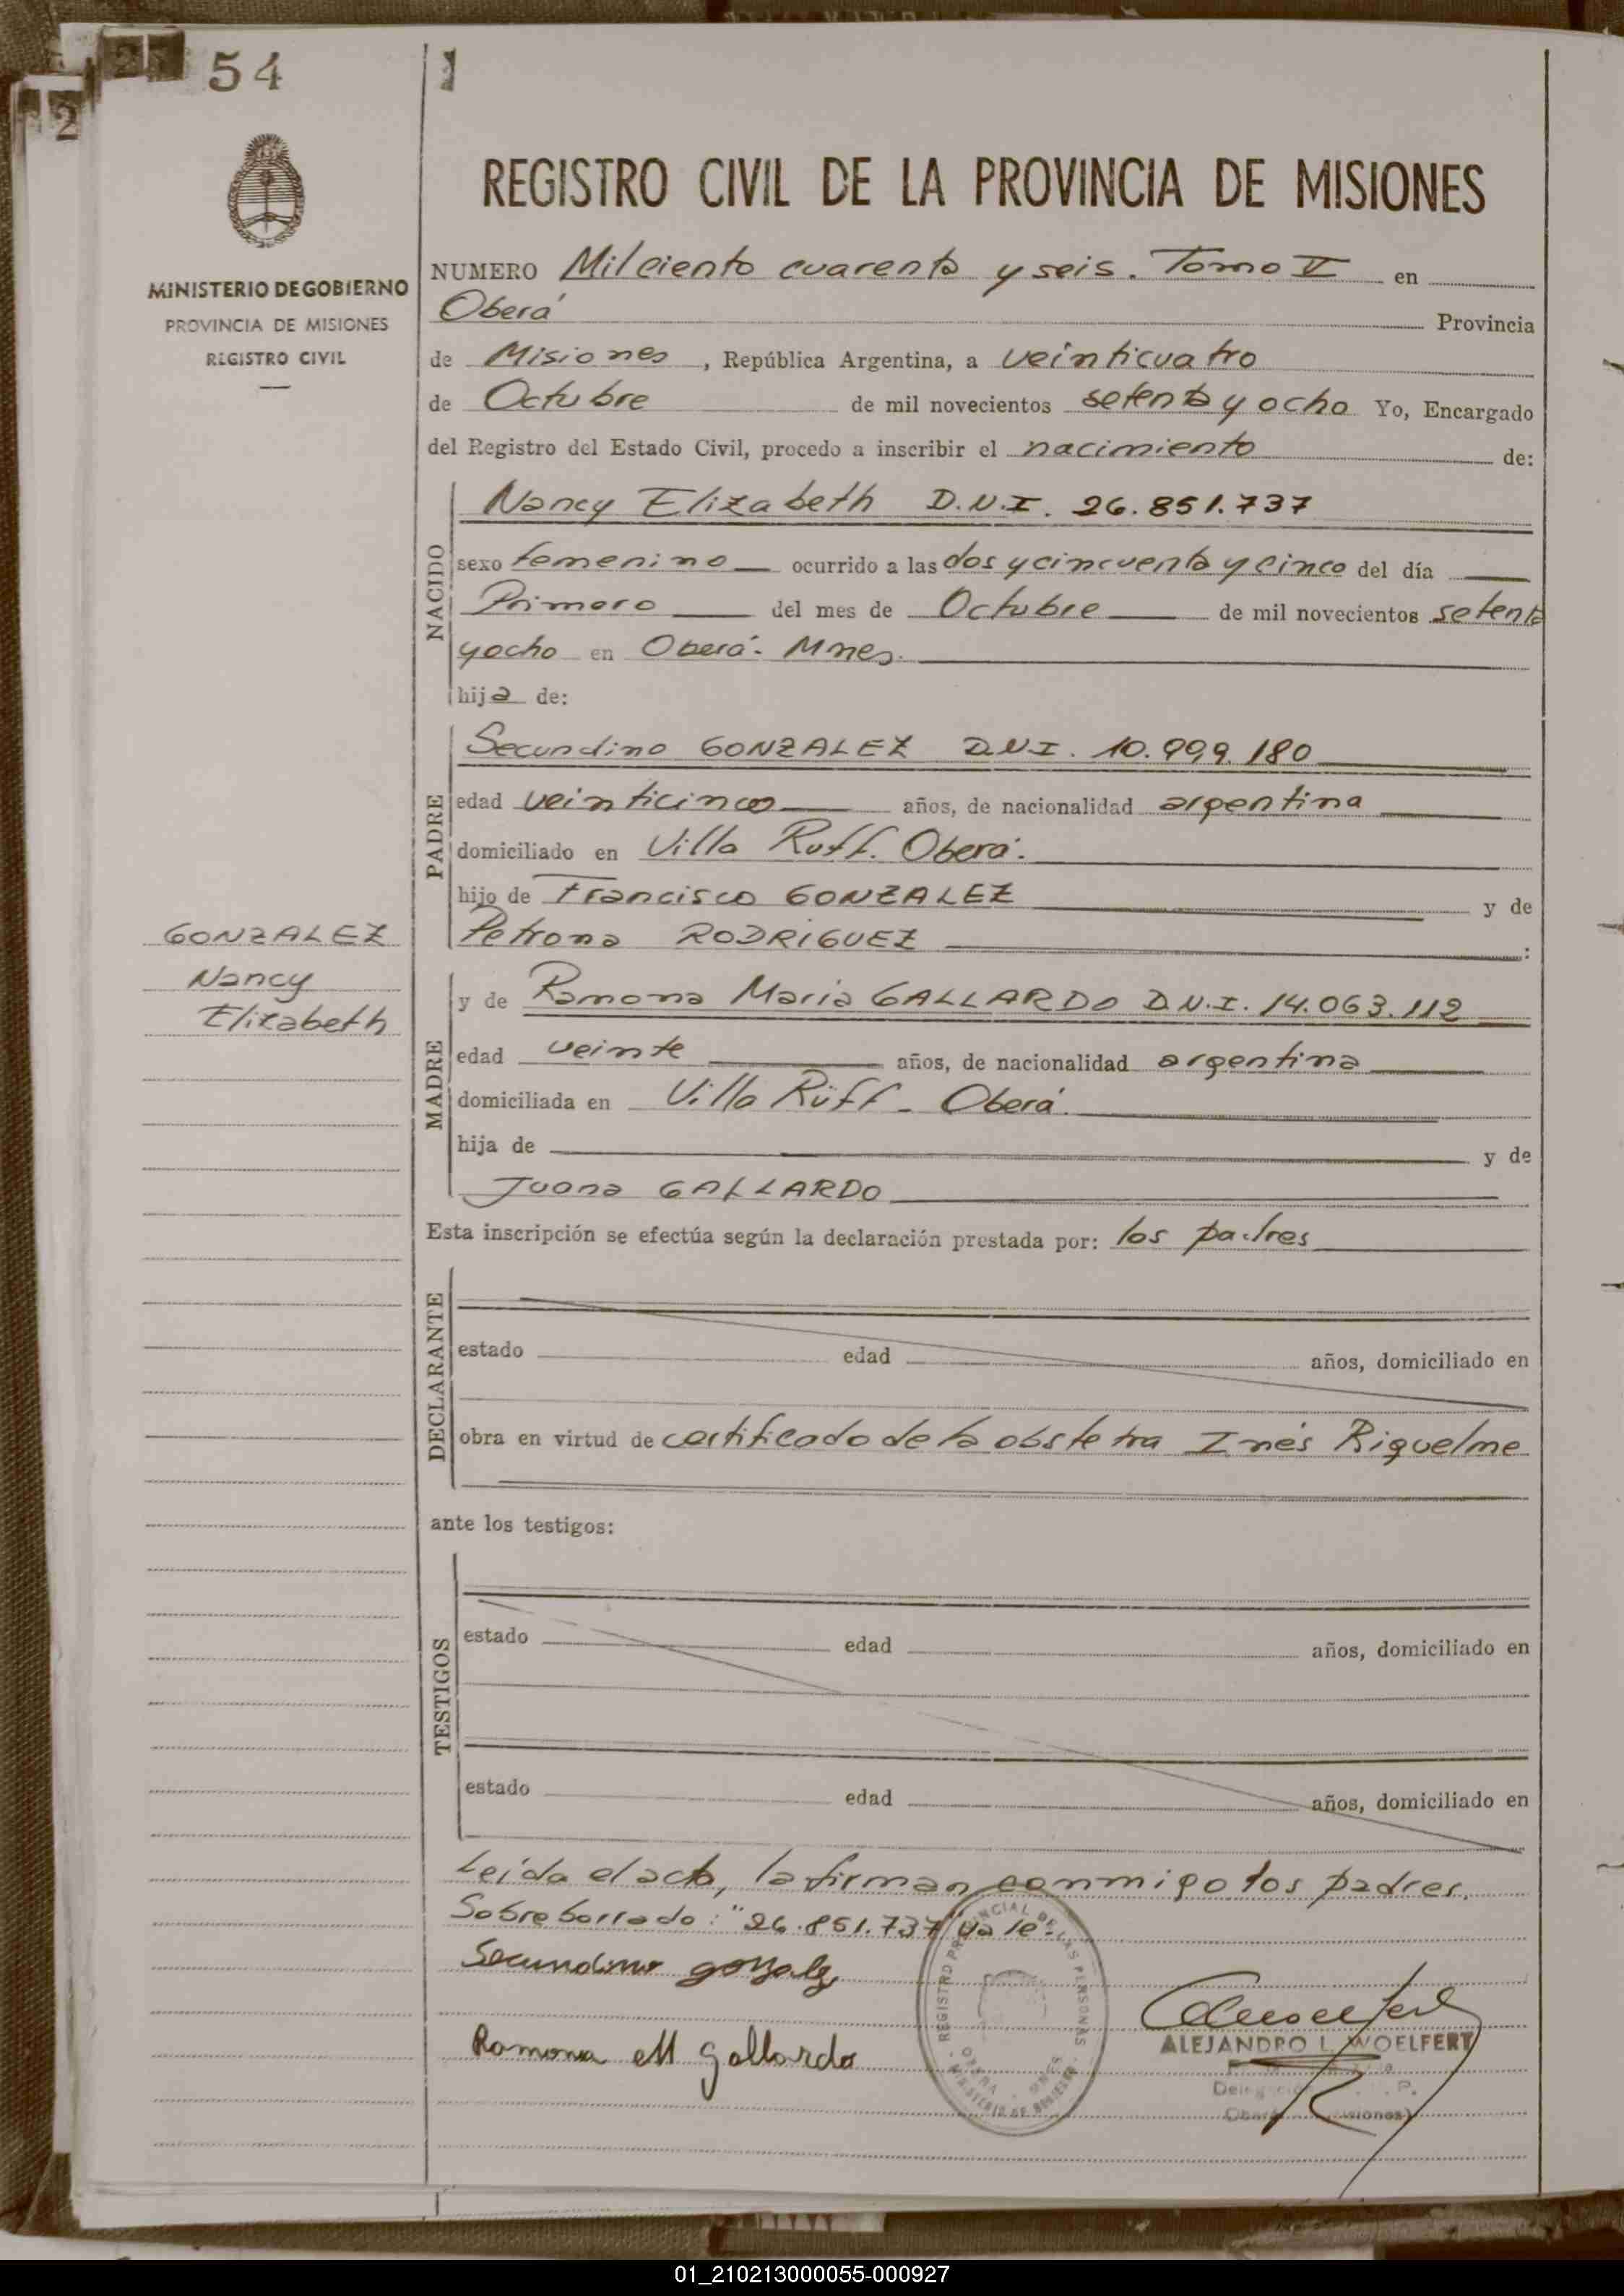 54
2
MINISTERIO DE GOBIERNO
PROVINCIA DE MISIONES
REGISTRO CIVIL
REGISTRO CIVIL DE LA PROVINCIA DE MISIONES
NUMERO Mil ciento cuarenta y seis. Tomo V en
Oberá Provincia
de Misiones, República Argentina, a veinticuatro
de Octubre de mil novecientos setenta y ocho Yo, Encargado
del Registro del Estado Civil, procedo a inscribir el nacimiento de:
NACIDO
Nancy Elizabeth D.N.I. 26.851.737
sexo femenino ocurrido a las dos y cincuenta y cinco del día
Primero del mes de Octubre de mil novecientos setenta
y ocho en Oberá - Mnes.
hija de:
PADRE
Secundino GONZALEZ D.N.I. 10.999.180
edad veinticinco años, de nacionalidad argentina
domiciliado en Villa Ruff. Oberá.
hijo de Francisco GONZALEZ y de
Petrona RODRIGUEZ :
GONZALEZ
Nancy
Elizabeth
MADRE
y de Ramona Maria GALLARDO D.N.I. 14.063.112
edad veinte años, de nacionalidad argentina
domiciliada en Villa Rüff - Oberá.
hija de y de
Juana GALLARDO
Esta inscripción se efectúa según la declaración prestada por: los padres
DECLARANTE
estado edad años, domiciliado en
obra en virtud de certificado de la obstetra Inés Riquelme
ante los testigos:
TESTIGOS
estado edad años, domiciliado en
estado edad años, domiciliado en
Leída el acta, la firman conmigo los padres.
Sobre borrado: "26.851.737" vale.
Secundino gonzalez
Ramona M gallardo
REGISTRO PROVINCIAL DE LAS PERSONAS
OBERA - MNES
MINISTERIO DE GOBIERNO
ALEJANDRO L. WOELFERT
01_210213000055-000927